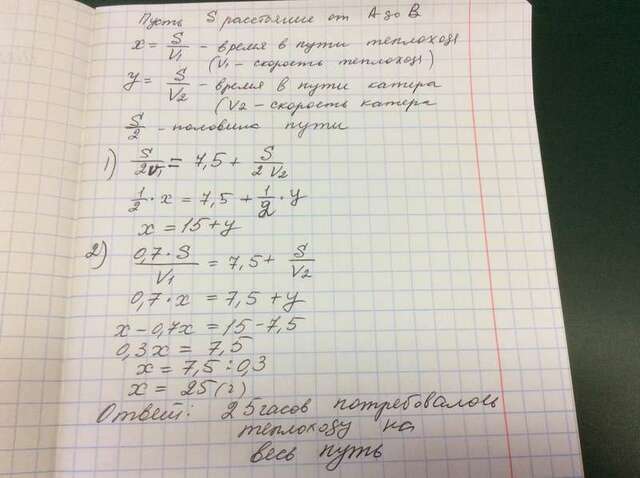 Пусть S расстояние от А до В
x = S/V1 - время в пути теплохода
(V1 - скорость теплохода)
y = S/V2 - время в пути катера
(V2 - скорость катера
S/2 - половина пути
1) S/2V1 = 7,5 + S/2V2
1/2 · x = 7,5 + 1/2 · y
x = 15 + y
2) 0,7 · S/V1 = 7,5 + S/V2
0,7 · x = 7,5 + y
x - 0,7x = 15 - 7,5
0,3x = 7,5
x = 7,5 : 0,3
x = 25 (ч)
Ответ: 25 часов потребовалось
теплоходу на
весь путь